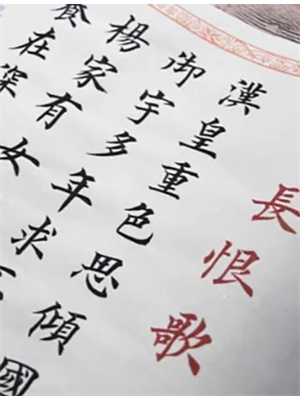 長恨歌
漢皇重色思傾國
御宇多年求不
楊家有女
養在深